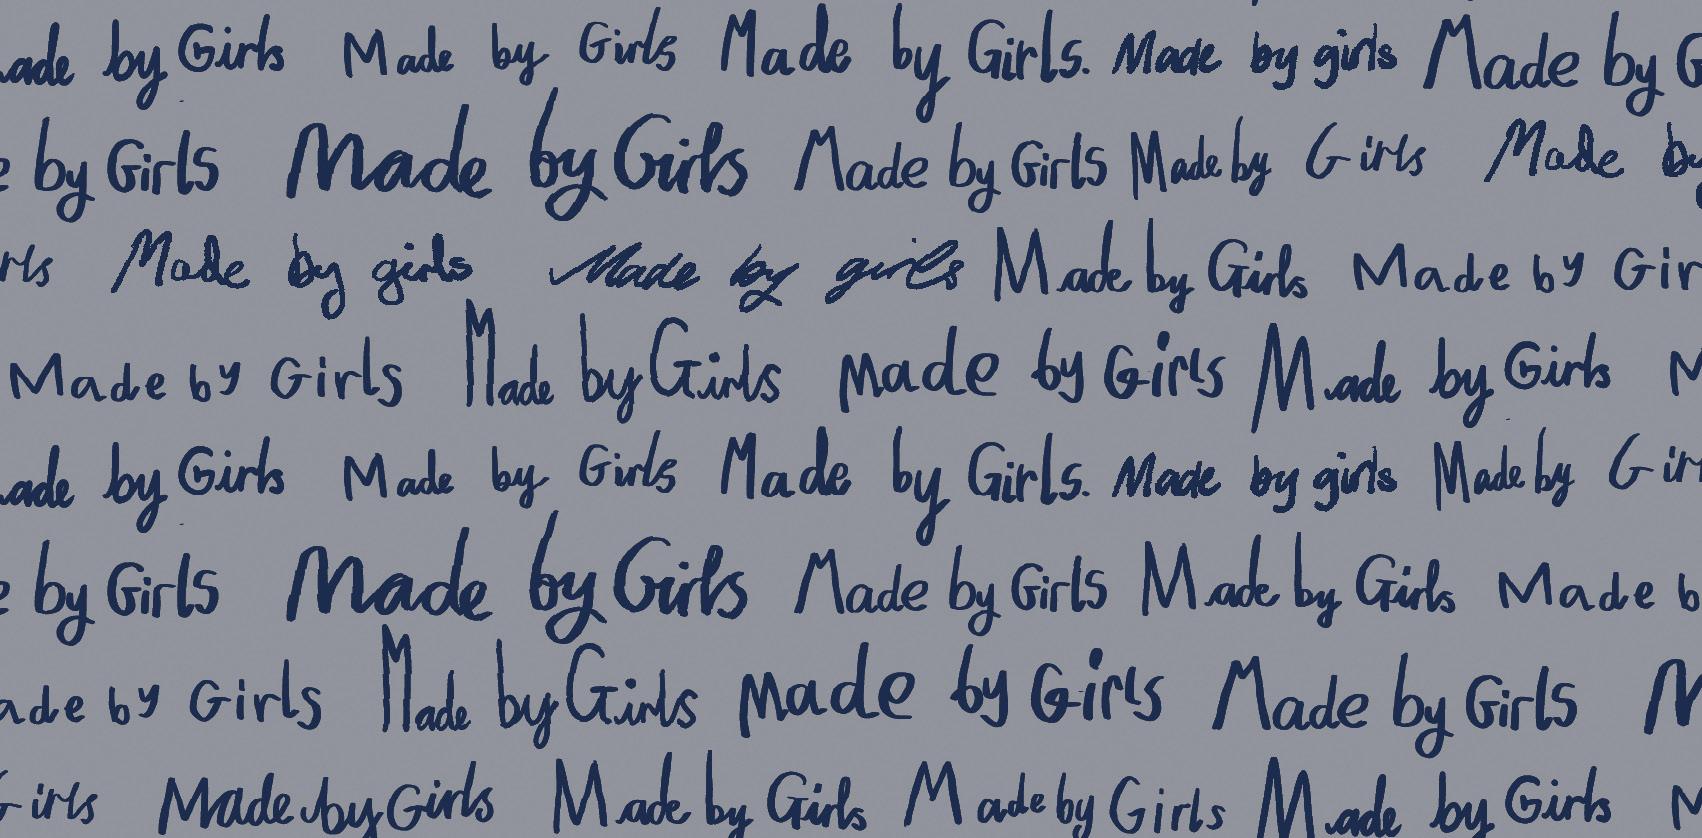 ade by Girls Made by Girls Made by Girls. Made by girls Made by G
e by Girls Made by Girls Made by Girls Made by Girls Made by
rls Made by girls Made by girls Made by Girls Made by Gir
Made by Girls Made by Girls Made by Girls Made by Girls M
ade by Girls Made by Girls Made by Girls. Made by girls Made by Gir
e by Girls Made by Girls Made by Girls Made by Girls Made b
ade by Girls Made by Girls Made by Girls Made by Girls M
Girls Made by Girls Made by Girls Made by Girls Made by Girls M